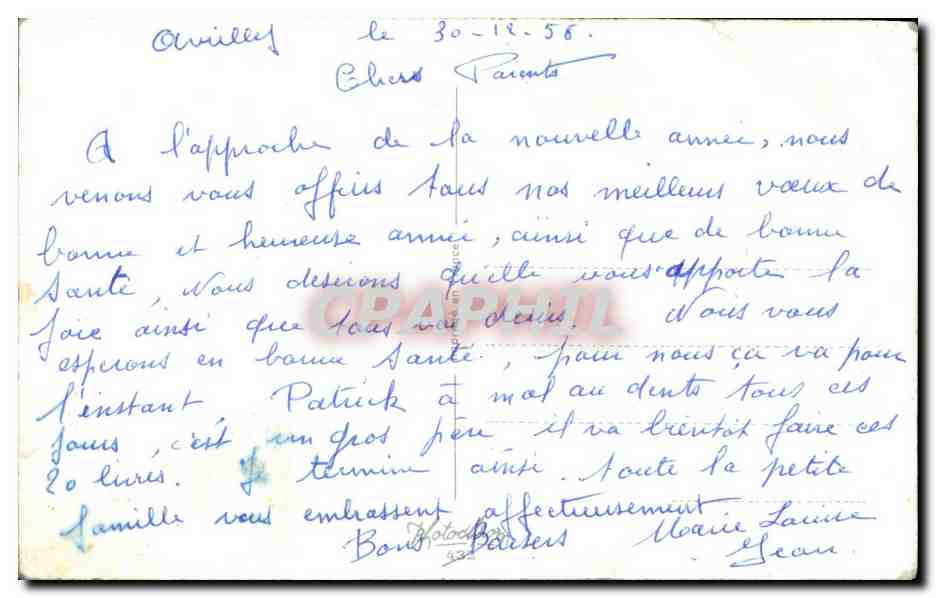 Avrilly le 30-12-56.
Chers Parents
A l'approche de la nouvelle année, nous
venons vous offrir tous nos meilleurs vœux de
bonne et heureuse année, ainsi que de bonne
santé, Nous desirons qu'elle vous apporte la
joie ainsi que tous vos désirs. Nous vous
esperons en bonne santé, pour nous ça va pour
l'instant, Patrick à mal au dents tous ces
jours, c'est un gros père il va bientot faire ces
20 livres. Je termine ainsi. toute la petite
famille vous embrassent affectueusement
Bons Baisers Marie Louise
Jean.
CPAPHIL